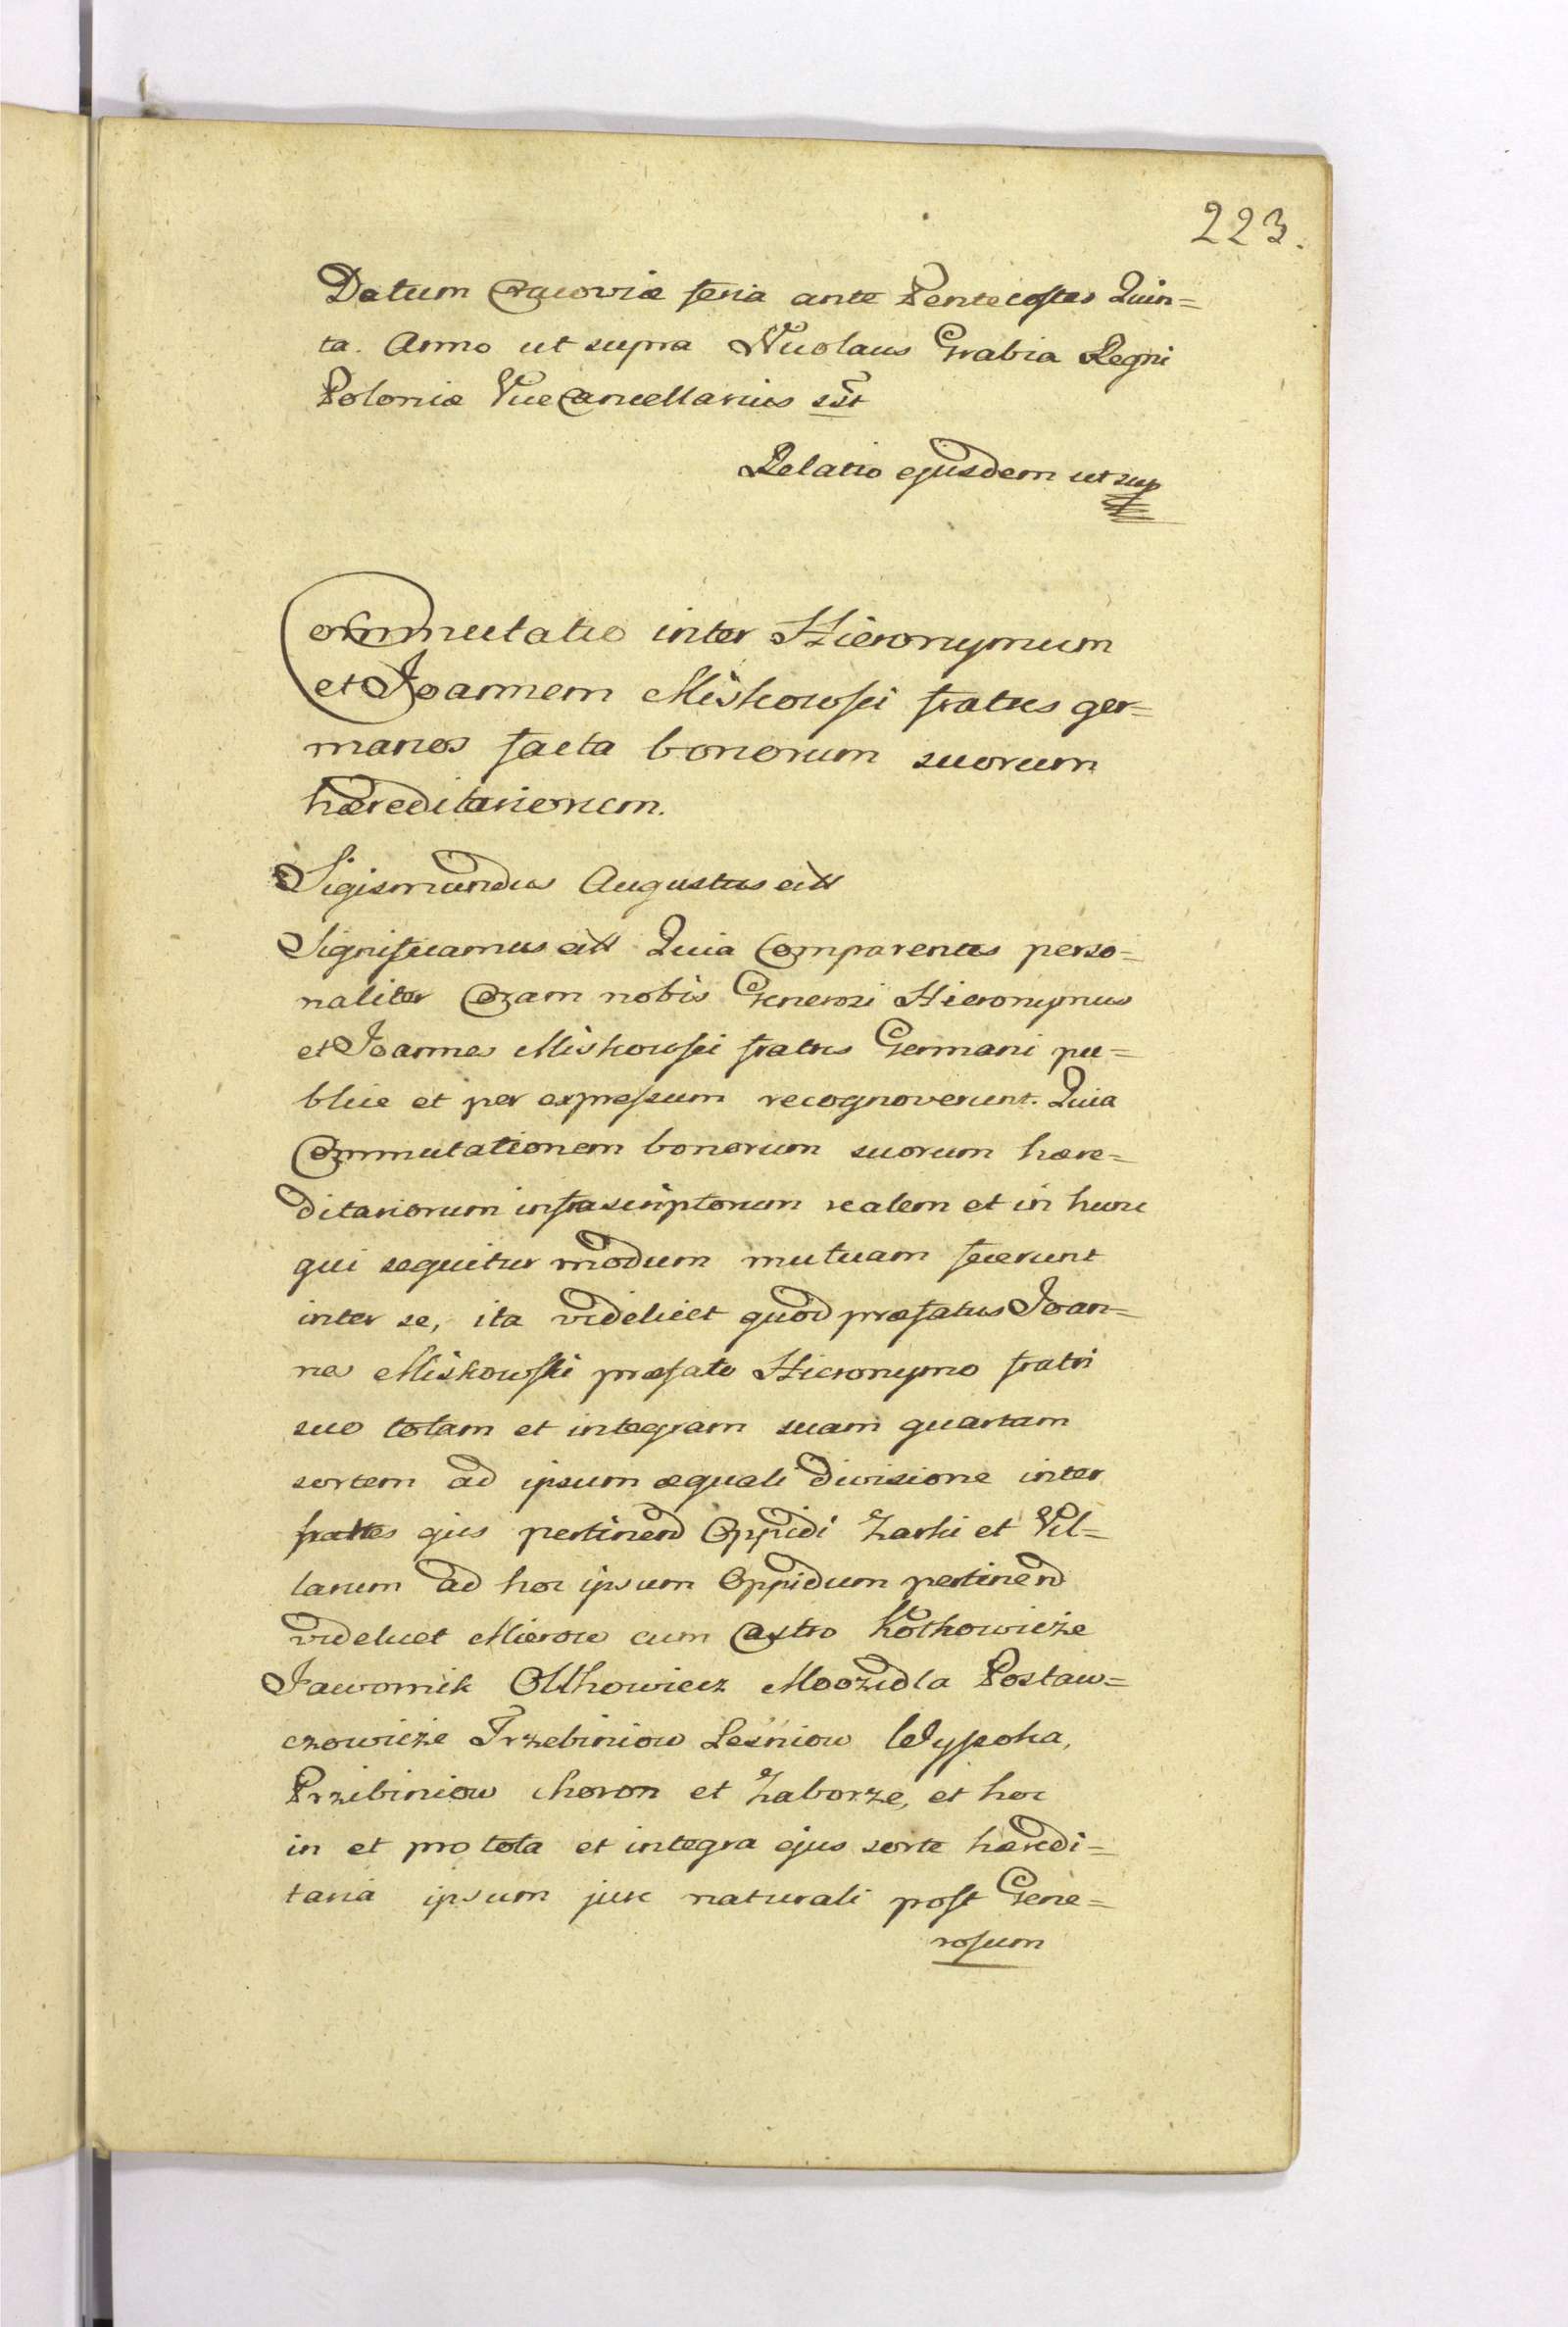 223.
Datum Cracoviæ feria ante Pentecostes Quin=
ta. Anno ut supra Nicolaus Grabia Regni
Poloniæ ViceCancellarius sst
Relatio ejusdem ut sup
Commutatio inter Hieronymum
et Joannem Miskowsci fratres ger=
manos facta bonorum suorum
hæreditariorum.
Sigismundus Augustus ett
Significamus ett Quia Comparentes perso=
naliter Coram nobis Generosi Hieronymus
et Joannes Miskowsci fratres Germani pu=
blice et per expressum recognoverunt. Quia
Commutationem bonorum suorum hære=
ditariorum infrascriptorum realem et in hunc
qui sequitur modum mutuam fecerunt
inter se, ita videlicet quod præfatus Joan=
nes Miskowski præfato Hieronymo fratri
suo totam et integram suam quartam
sortem ad ipsum æquali divisione inter
fratres ejus pertinend Oppidi Zarki et Vil=
larum ad hoc ipsum Oppidum pertinend
videlicet Mierow cum Castro Kotkowicze
Jawornik Olkowicz Moozidla Postaw=
czowicze Trzebiniow Leśniow Wysoka,
Przibiniow Choron et Zaborze, et hoc
in et pro tota et integra ejus sorte hæredi=
taria ipsum jure naturali post Gene=
rosum